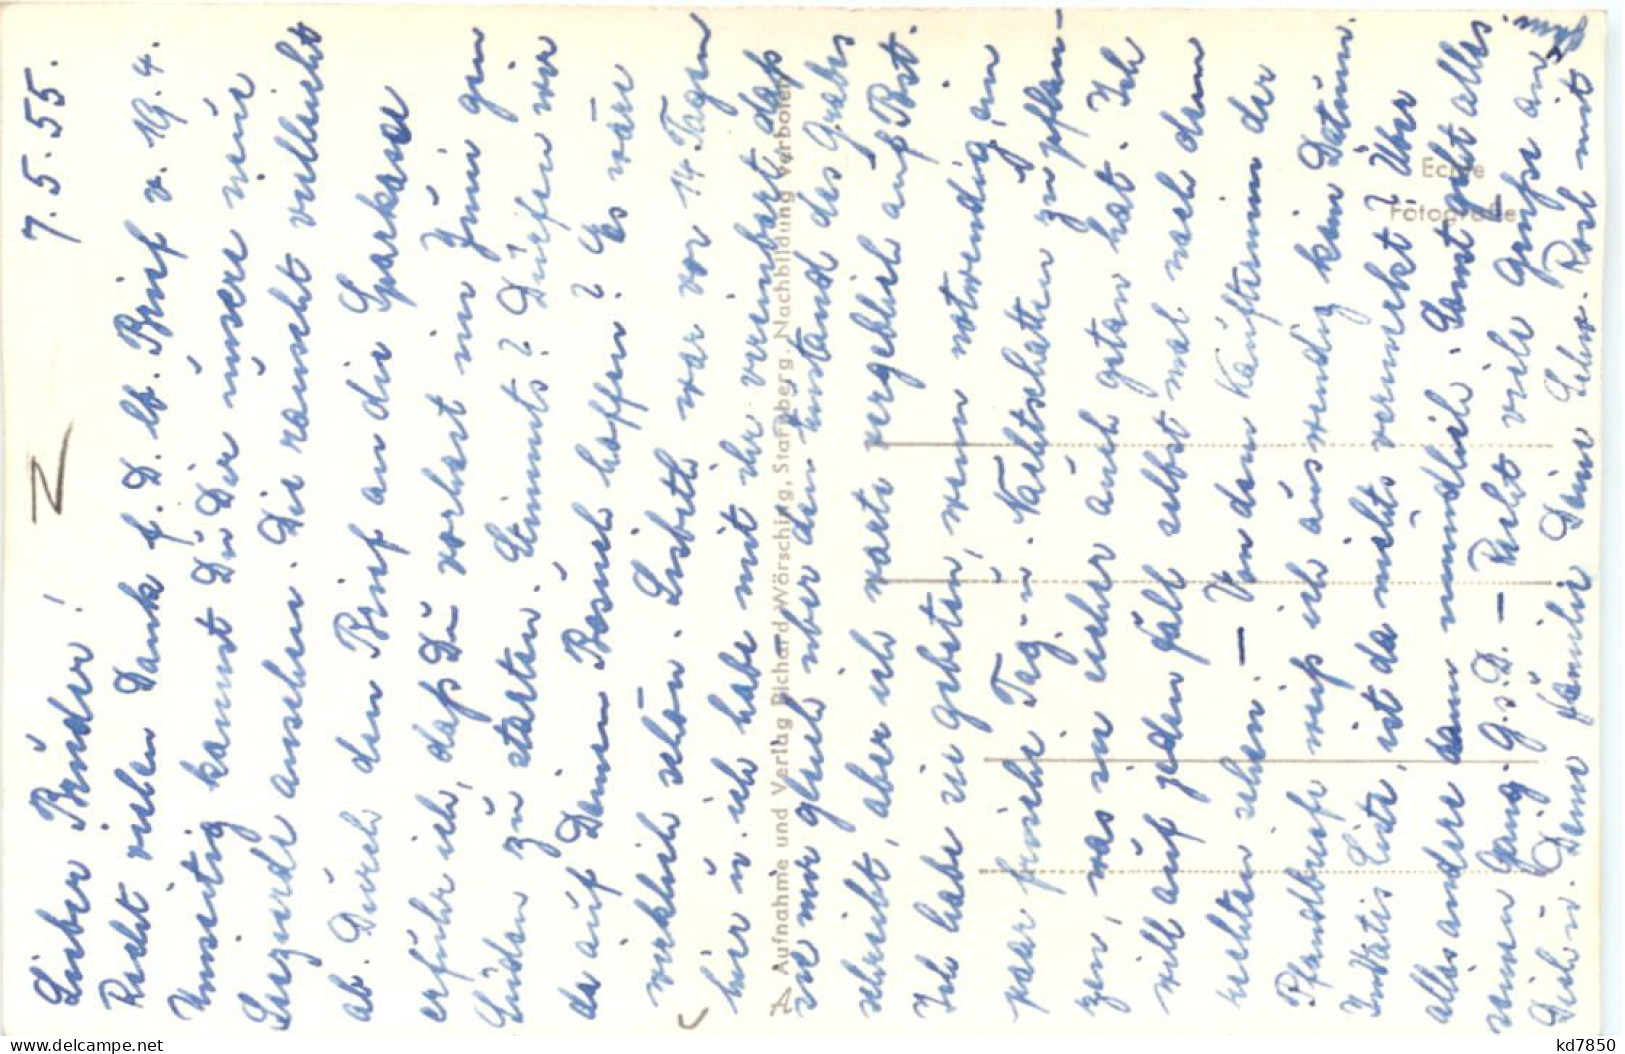 7.5.55.
Lieber Bruder!
Recht vielen Dank f. D. lb. Brief v. 19.4.
Umseitig kannst Du Dir unsere neue
ansehen. Die rauscht vielleicht
ab. Durch den Brief an die Sparkasse
erfuhr ich, daß Du vorhast im Juni gen
Süden zu starten. Stimmts? Dürfen wir
da auf Deinen Besuch hoffen? Es wäre
wirklich schön. Lisbeth war vor 14 Tagen
hier u. ich habe mit ihr vereinbart daß
sie mir gleich über den Zustand des Grabes
schreibt, aber ich warte vergeblich auf Post.
Ich habe sie gebeten, wenn notwendig, ein
paar frische Tag- u. Nachtschatten zu pflan-
zen, was sie sicher auch getan hat. Ich
will auf jeden Fall selbst mal nach dem
rechten sehen. – Von den der
Pfandbriefe weiß ich auswendig kein Datum.
In Vatis Liste, ist da nichts vermerkt? Über
alles andere dann mündlich. Sonst geht alles
seinen Gang. G.s.D. – Recht viele Grüße an
Dich u. Deine Familie Deine Schw. Rosl mit
Aufnahme und Verlag Richard Wörsching, Starnberg. Nachbildung verboten
Echte
Fotografie
delcampe.net
kd7850